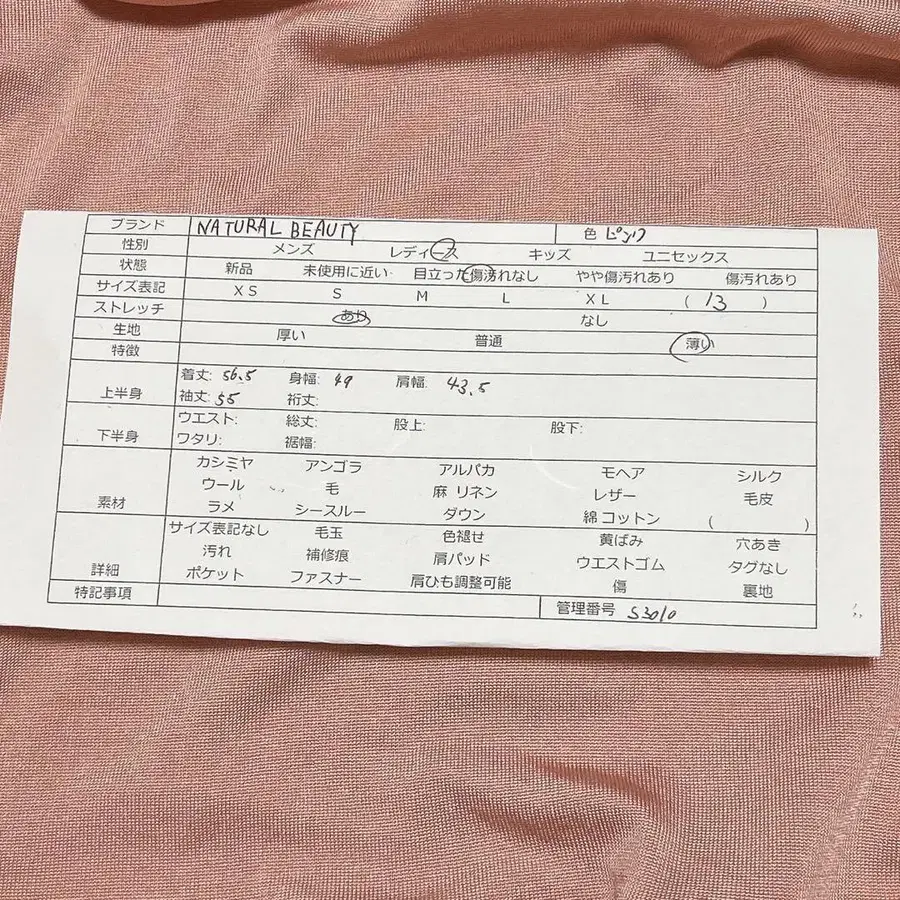 ブランド NATURAL BEAUTY 色 ピンク
性別 メンズ レディース キッズ ユニセックス
状態 新品 未使用に近い 目立った傷汚れなし やや傷汚れあり 傷汚れあり
サイズ表記 XS S M L XL ( 13 )
ストレッチ あり なし
生地 厚い 普通 薄い
特徴
上半身 着丈: 56.5 身幅: 49 肩幅: 43.5
袖丈: 55 裄丈:
下半身 ウエスト: 総丈: 股上: 股下:
ワタリ: 裾幅:
素材 カシミヤ アンゴラ アルパカ モヘア シルク
ウール 毛 麻 リネン レザー 毛皮
ラメ シースルー ダウン 綿 コットン ( )
詳細 サイズ表記なし 毛玉 色褪せ 黄ばみ 穴あき
汚れ 補修痕 肩パッド ウエストゴム タグなし
ポケット ファスナー 肩ひも調整可能 傷 裏地
特記事項 管理番号 S3010